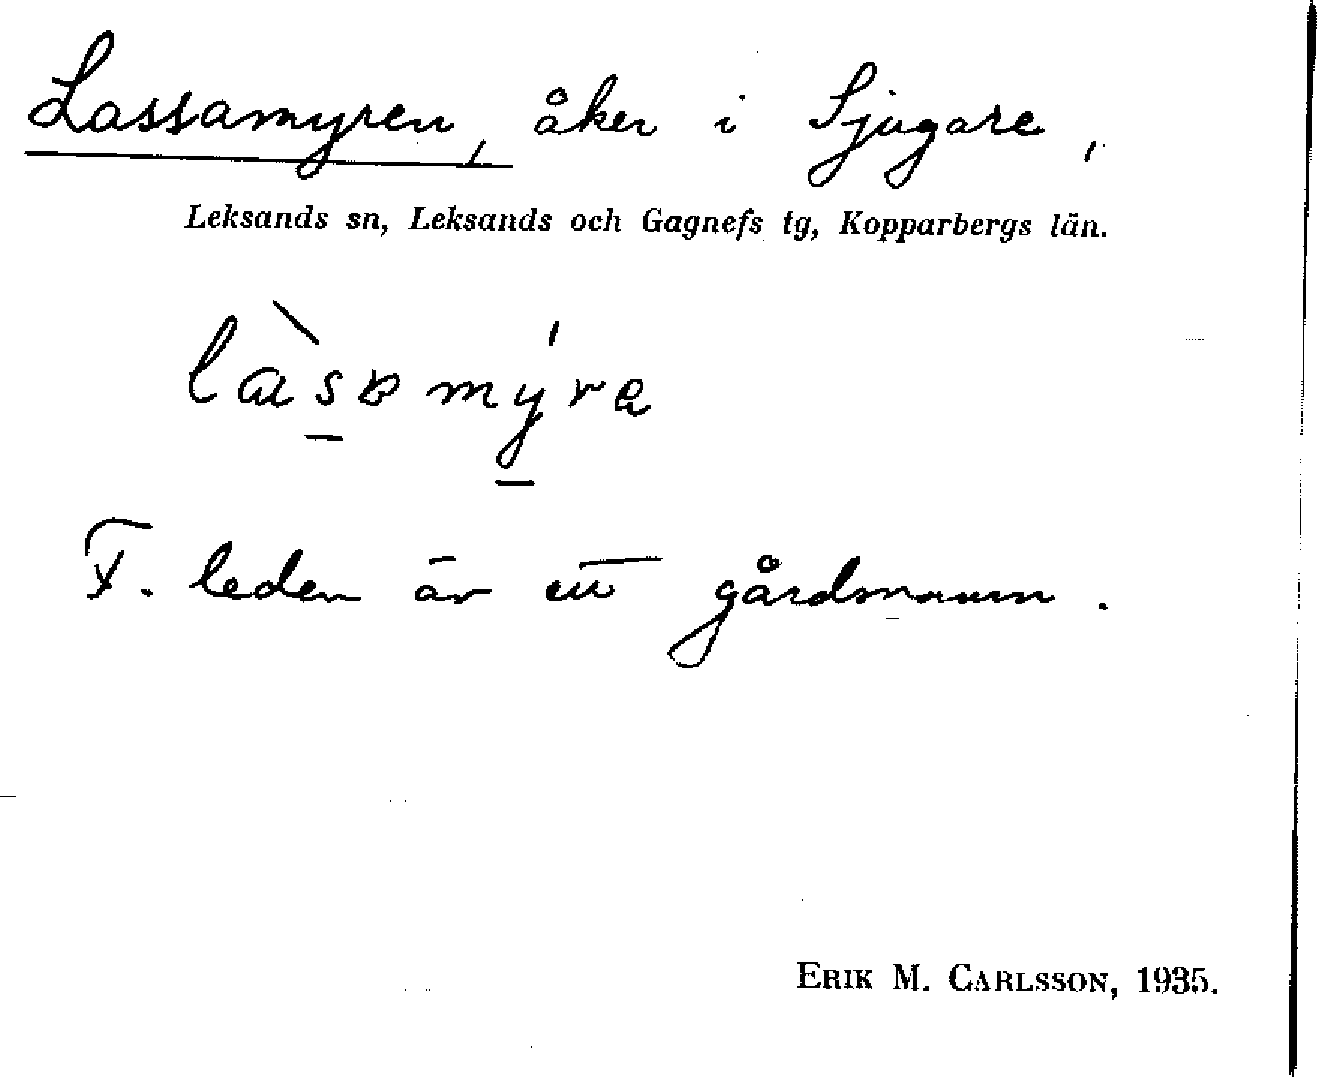 Lassamyren, åker i Sjugare,
Leksands sn, Leksands och Gagnefs tg, Kopparbergs län.
F. leden är ett gårdsnamn.
ERIK M. CARLSSON, 1935.